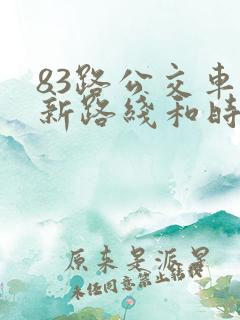 83路公交车
新路线和时
原来是派星
未经同意禁止转载